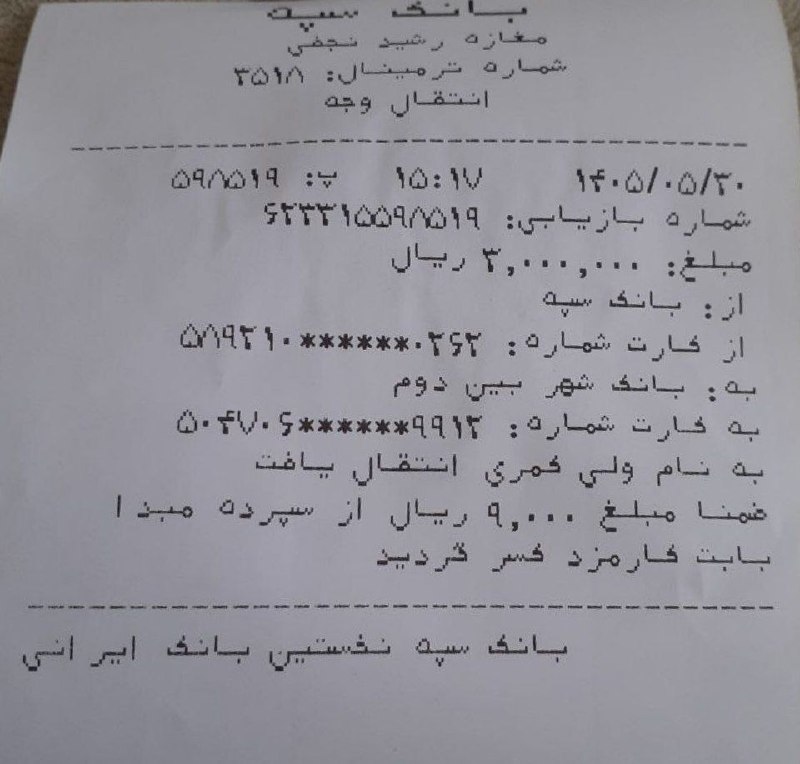 بانک سپه
مغازه رشید نجفی
شماره ترمینال: ۳۵۱۸
انتقال وجه
۱۴۰۵/۰۵/۳۰ ۱۵:۱۷ پ: ۵۹۸۵۱۹
شماره بازیابی: ۶۲۳۳۱۵۵۹۸۵۱۹
مبلغ: ۳,۰۰۰,۰۰۰ ریال
از: بانک سپه
از کارت شماره: ۵۸۹۲۱۰******۰۲۶۲
به: بانک شهر بین دوم
به کارت شماره: ۵۰۴۷۰۶******۹۹۱۲
به نام ولی کمری انتقال یافت
ضمنا مبلغ ۹,۰۰۰ ریال از سپرده مبدا
بابت کارمزد کسر گردید
بانک سپه نخستین بانک ایرانی